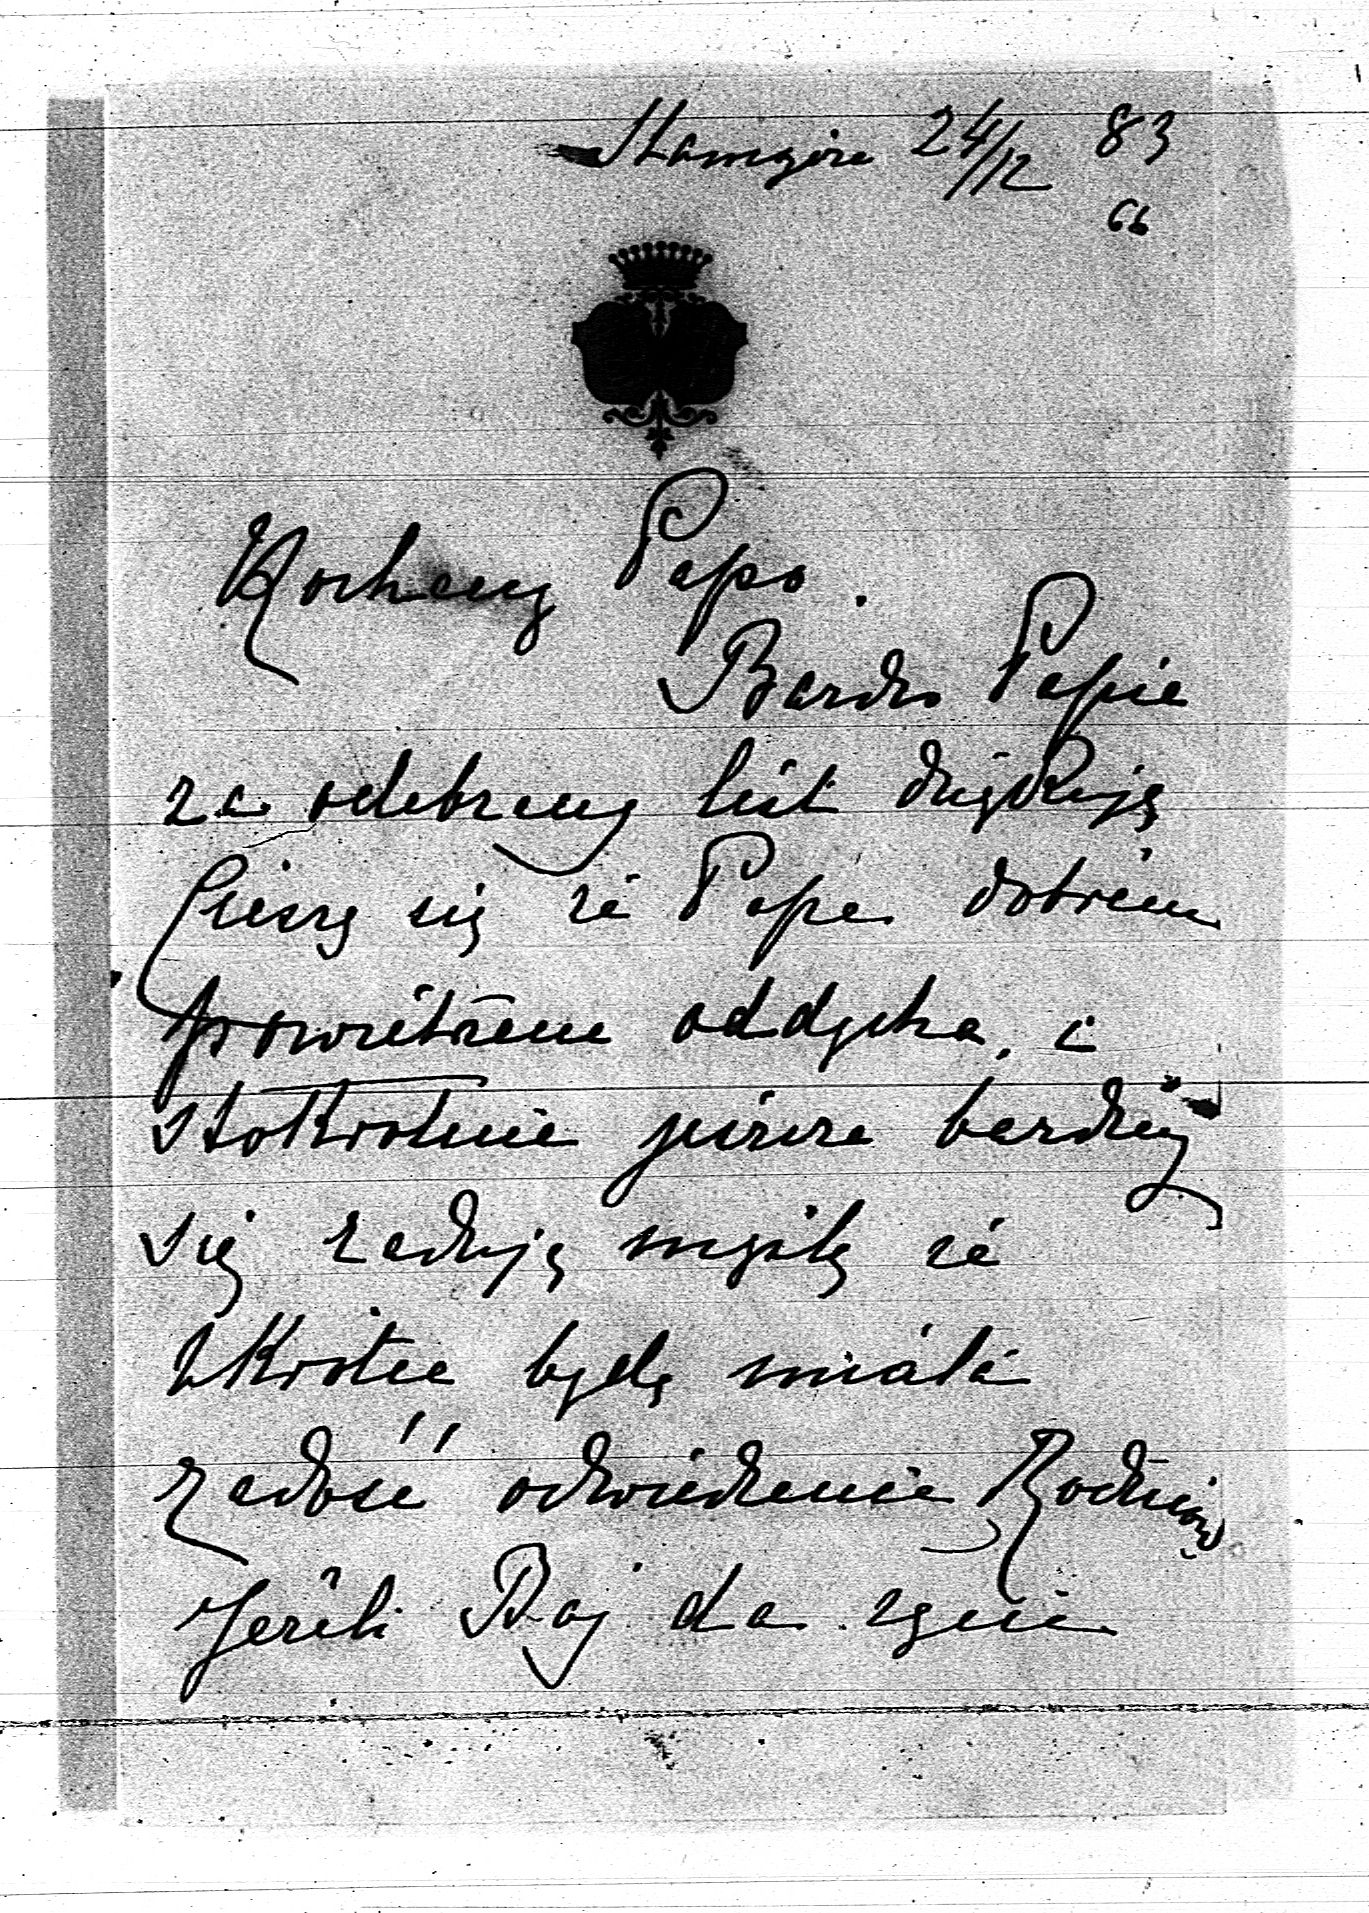 24/12 83
66
Kochany Papo.
Bardzo Papie
za odebrany list dziękuję
Cieszę się że Papa dobrem
powietrzem oddycha, i
stokrotnie jeszcze bardziej
się raduję myślą że
wkrótce będę miała
radość odwiedzenia Rodziców
Jeżeli Bóg da życie